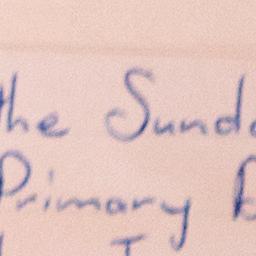 the Sunda
Primary